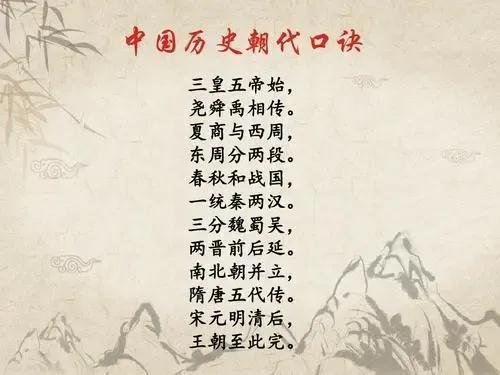 中国历史朝代口诀
三皇五帝始，
尧舜禹相传。
夏商与西周，
东周分两段。
春秋和战国，
一统秦两汉。
三分魏蜀吴，
两晋前后延。
南北朝并立，
隋唐五代传。
宋元明清后，
王朝至此完。